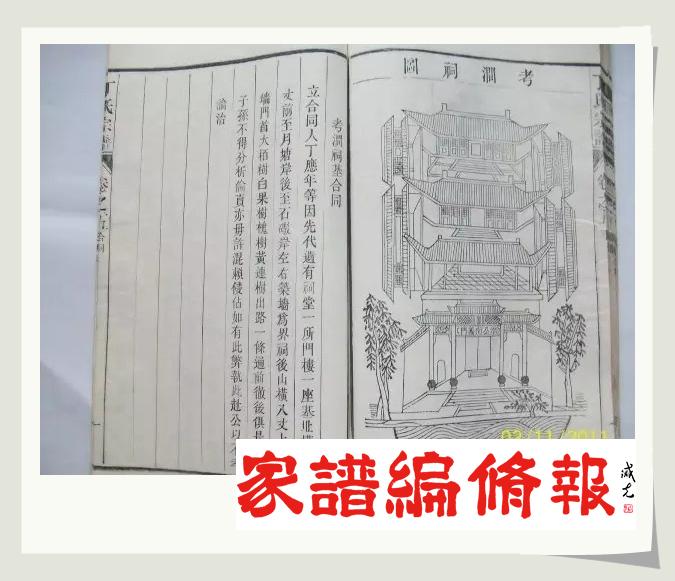 考澗祠圖
考澗祠基合同
立合同人丁應年等因先代遺有祠堂一所門樓一座基址
丈前至月塘岸後至石磡岸左右築墻爲界祠後山橫入丈
墻門首大栢樹白果樹槐樹黃連樹出路一條通前徹後俱
子孫不得分析倫賣亦毋許混賴侵佔如有此弊執此赴公以不
論治
丁氏宗譜
卷之一
02/11/2011
家譜編脩報